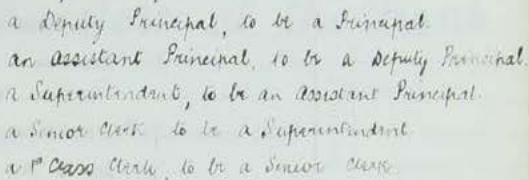 a Deputy Principal, to be a Principal.
an Assistant Principal, to be a Deputy Principal.
a Superintendent, to be an Assistant Principal.
a Senior Clerk, to be a Superintendent.
a 1st Class Clerk, to be a Senior Clerk.